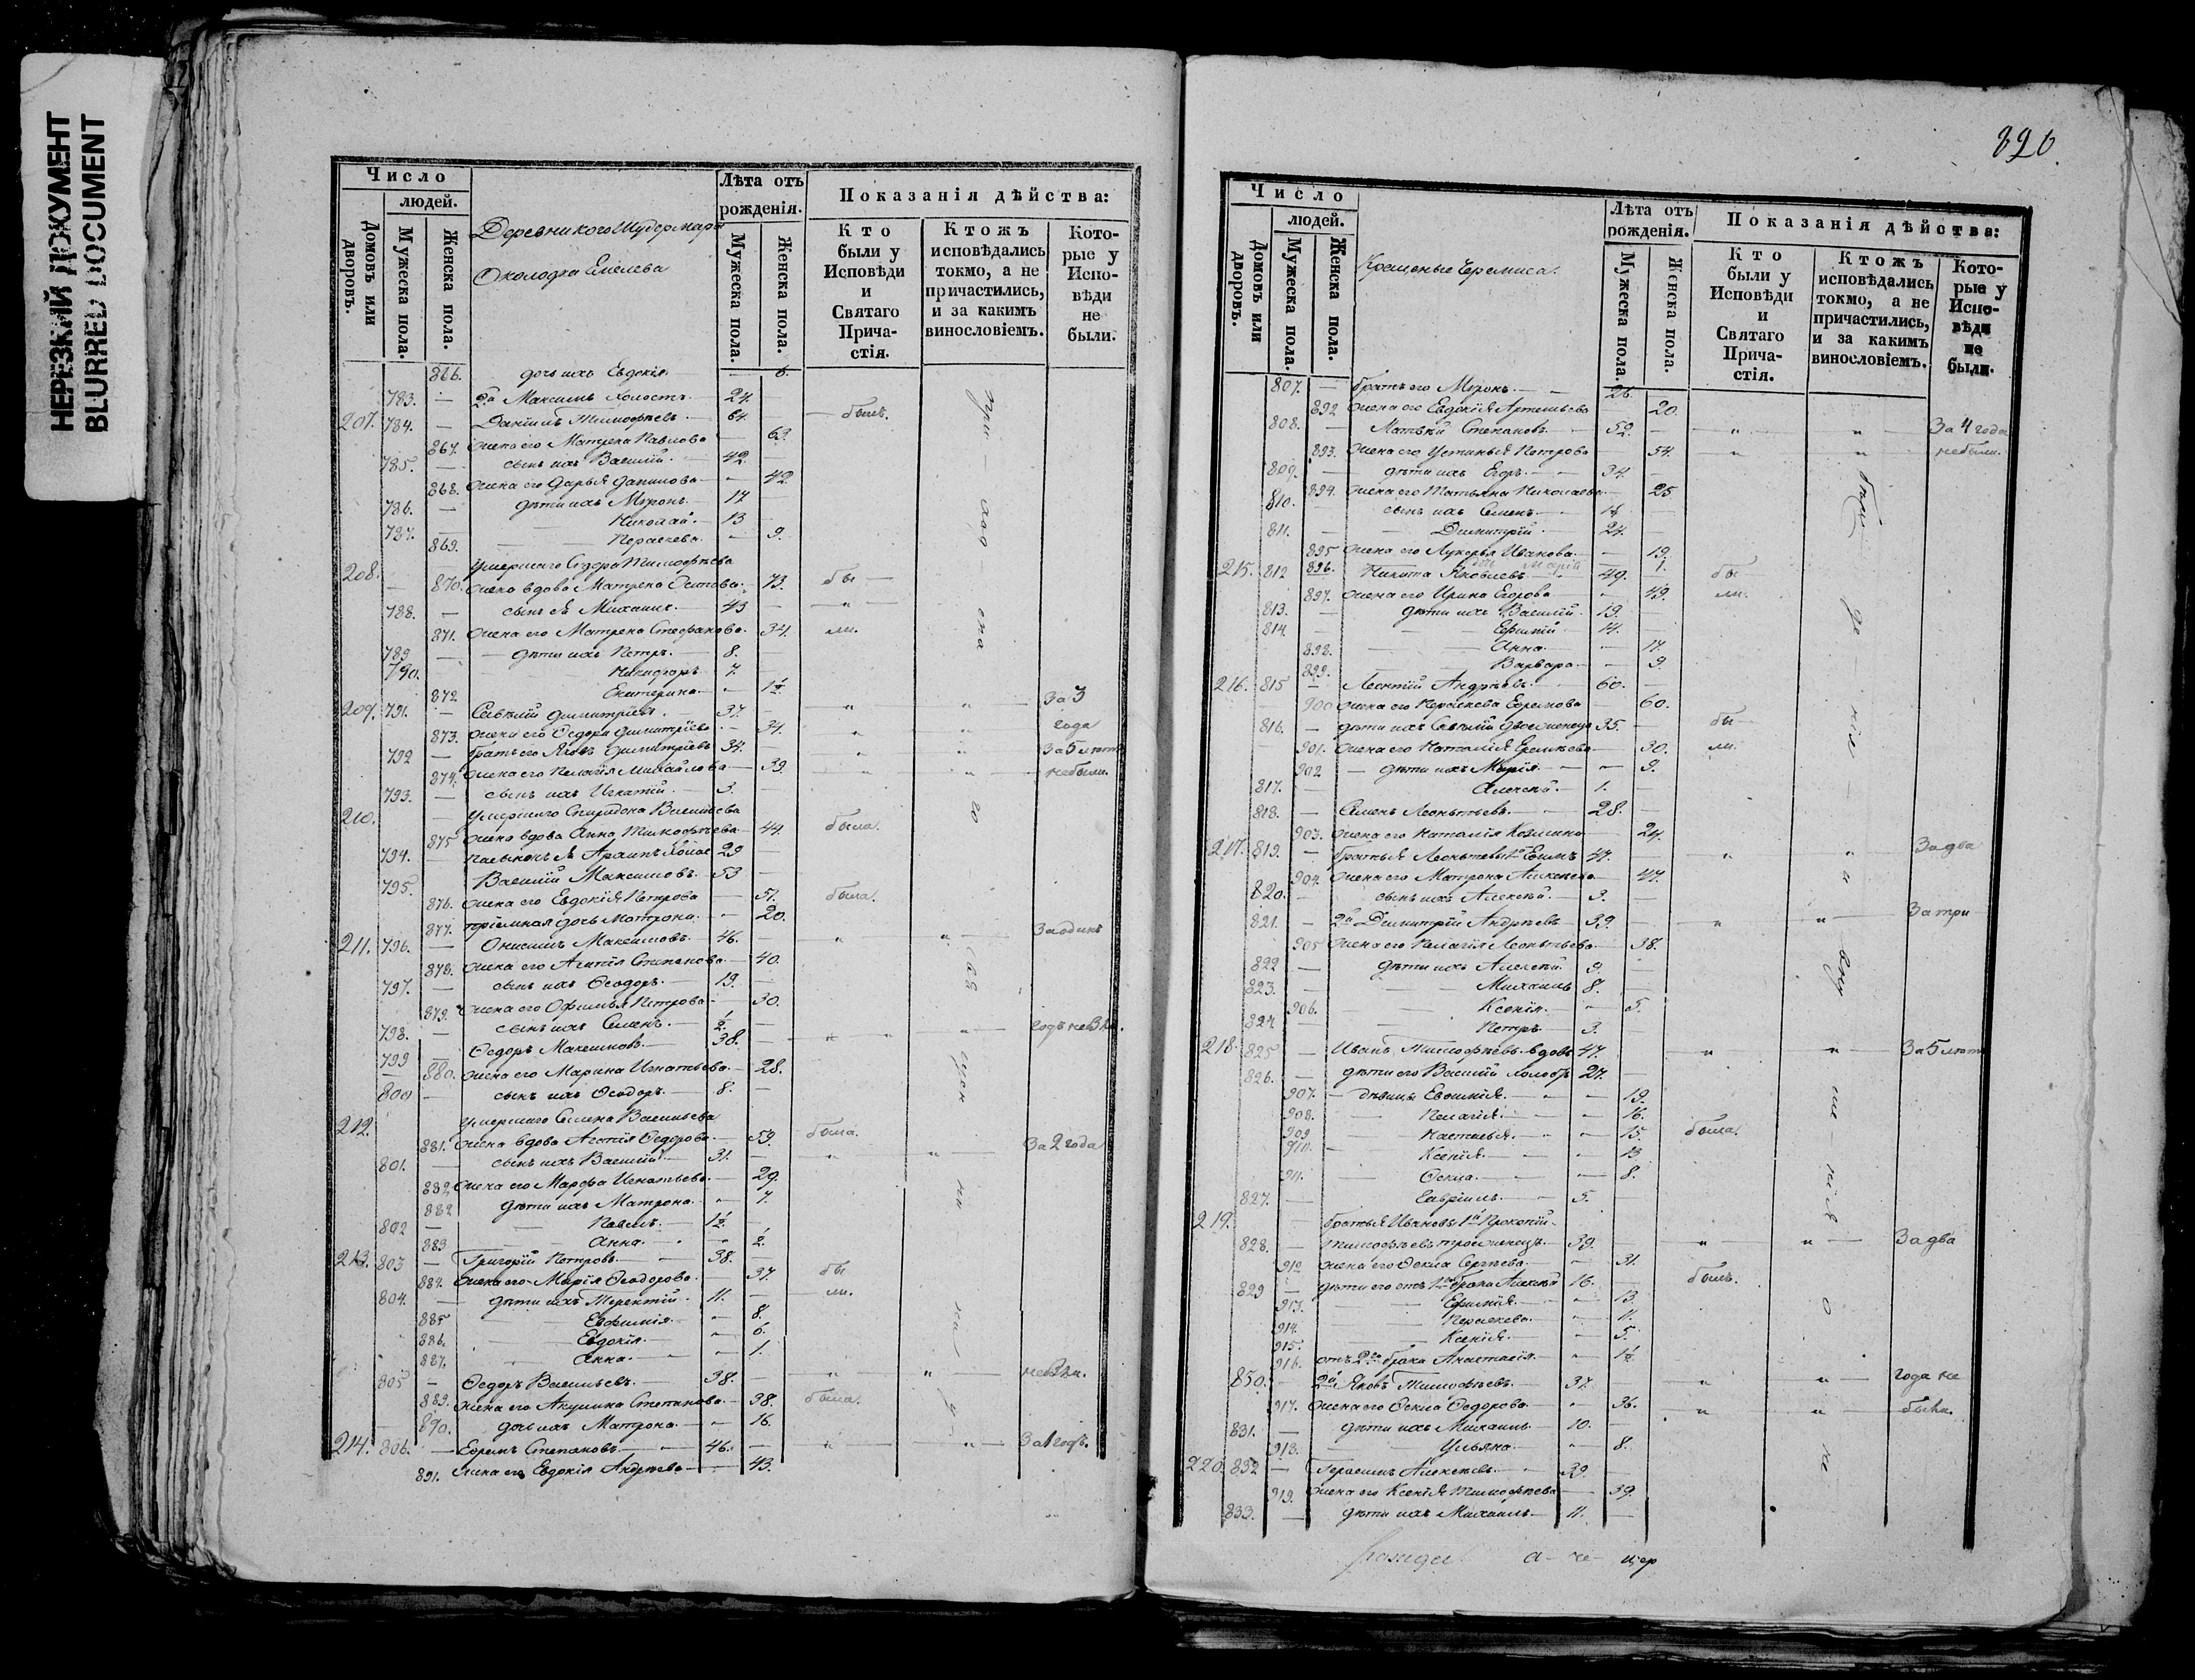 НЕРЕЗКИЙ ДОКУМЕНТ
BLURRED DOCUMENT
Число
людей.
Домовъ или дворовъ.
Мужеска пола.
Женска пола.
Околодка Емелева
Лѣта отъ рожденія.
Мужеска пола.
Женска пола.
Показанія дѣйства:
Кто были у Исповѣди и Святаго Причастія.
Ктожъ исповѣдались токмо, а не причастились, и за какимъ винословіемъ.
Которые у Исповѣди не были.
866. дочь ихъ Евдокія 6.
783. — 2й Максимъ холостъ 24.
207. 784. — Даніилъ Тимофѣевъ 64. — былъ.
867. жена его Матрена Павлова — 63.
785. — сынъ ихъ Василій 42.
868. жена его Дарья Данилова — 42.
786. — дѣти ихъ Миронъ 17
787. — Николай 13
869. — Параскева — 9.
208. умершаго Сидора Тимофѣева
870. жена вдова Матрена Осипова 73. бы —
788. — сынъ ея Михаилъ 43 — "
871. жена его Матрена Стефанова 34. ли.
789 — дѣти ихъ Петръ 8.
790. Никифоръ 7.
872 Екатерина 1½
209. 791. — Савелій Димитріевъ 37. — " " За 3
873. жена его Ѳедора Димитріева — 34. " " года
792 — братъ его Яковъ Димитріевъ 34. " " За 5 лѣтъ
874. жена его Пелагія Михайлова — 39. " " небыли.
793. — сынъ ихъ Игнатій 3.
210. — умершаго Спиридона Васильева
875 жена вдова Анна Тимофѣева 44. была.
794. — пасынокъ я Архипъ холос 29
795. Василій Максимовъ 53
876. жена его Евдокія Петрова — 51. была.
877. пріемная дочь Матрона — 20.
211. 796. — Онисимъ Максимовъ 46. — " " За одинъ
878. жена его Агапія Степанова — 40.
797. — сынъ ихъ Ѳеодоръ 19.
879. жена его Офимья Петрова 30.
798. — сынъ ихъ Семенъ ½ — годъ не были.
799 — Ѳедоръ Максимовъ 38. — " "
880. жена его Марина Игнатьева — 28.
800 — сынъ ихъ Ѳеодоръ 8.
212. умершаго Семена Васильева
881. жена вдова Агафія Ѳедорова 59. была.
801. — сынъ ихъ Василій 31. — " " За 2 года
882 жена его Марфа Игнатьева 29.
882 дѣти ихъ Матрона — 7.
802 — Павелъ 1½
883 Анна — ½
213. 803 — Григорій Петровъ 38.
884. жена его Марія Ѳеодорова — 37. бы
804. — дѣти ихъ Терентій 11. — ли.
885 Евфимія — 8.
886. Евдокія — 6.
887. Анна — 1.
805 — Ѳедоръ Васильевъ 38. — " " не были.
889. жена его Акулина Степанова 38. была.
890. дочь ихъ Матрона — 16.
214. 806. — Ефремъ Степановъ 46. — " " За 1 годъ.
891. жена его Евдокія Андреева — 43.
820.
Число
людей.
Домовъ или дворовъ.
Мужеска пола.
Женска пола.
Крещеные Черемиса.
Лѣта отъ рожденія.
Мужеска пола.
Женска пола.
Показанія дѣйства:
Кто были у Исповѣди и Святаго Причастія.
Ктожъ исповѣдались токмо, а не причастились, и за какимъ винословіемъ.
Которые у Исповѣди не были.
807. — братъ его Миронъ 26.
892 жена его Евдокія Артемьева 20.
808. — Матвѣй Степановъ 52. — " " За 4 года
893. жена его Устинья Петрова — 54. " " небыли.
809. — дѣти ихъ Егоръ 34.
894. жена его Татьяна Николаева 25.
810. сынъ ихъ Семенъ
811. Димитрій 24.
895 жена его Лукерья Иванова — 19.
896. дочь Марія 1.
215. 812 Никита Яковлевъ 49. — бы
897. жена его Ирина Егорова — 49. ли.
813. — дѣти ихъ Василій 19.
814. Ефимій 14.
898. Анна — 17.
899. Варвара — 9.
216. 815 — Леонтій Андреевъ 60.
900 жена его Параскева Ефремова 60.
816. — дѣти ихъ Савелій двоеженецъ 35. — бы —
901. жена его Наталія Еремѣева — 30. ли.
902 — дѣти ихъ Марія — 9.
817. — Алексѣй 1.
818. — Семенъ Леонтьевъ 28.
903. жена его Наталія Козмина 24.
217. 819. — братья Леонтьевы 1й Ефимъ 47. — " " За два
904. жена его Матрона Алексѣева — 47.
820. — сынъ ихъ Алексѣй 3.
821. — 2й Димитрій Андреевъ 39. — " " За три
905 жена его Пелагія Леонтьева — 38.
822 — дѣти ихъ Алексѣй 9.
823. — Михаилъ 8.
906. Ксенія — 5.
824 Петръ 3.
218. 825 — Иванъ Тимофѣевъ вдовъ 47. — " " За 5 лѣтъ
826. — дѣти его Василій холостъ 27.
907. — дѣвицы Евфимія — 19.
908. Пелагія — 16.
909 Настасья — 15. была.
910. Ксенія — 13
911. Ѳекла — 8.
827. — Гавріилъ 5.
219. — братья Ивановы 1й Прокопій
828. — Тимофѣевъ троеженецъ 39. — " " За два
912 жена его Ѳекла Сергѣева — 31.
829 — дѣти его отъ 1го брака Алексѣй 16. — былъ.
913. Ефимія — 13.
914. Параскева — 11.
915. Ксенія — 5.
916. отъ 2го брака Анастасія — 1½
850. — 2й Яковъ Тимофѣевъ 37. — " " года не
917. жена его Ѳекла Ѳедорова — 36. " " были.
831. — дѣти ихъ Михаилъ 10.
918. Ульяна — 8.
220. 832 — Герасимъ Алексѣевъ 39.
919. жена его Ксенія Тимофѣева — 39.
833. — дѣти ихъ Михаилъ 11.